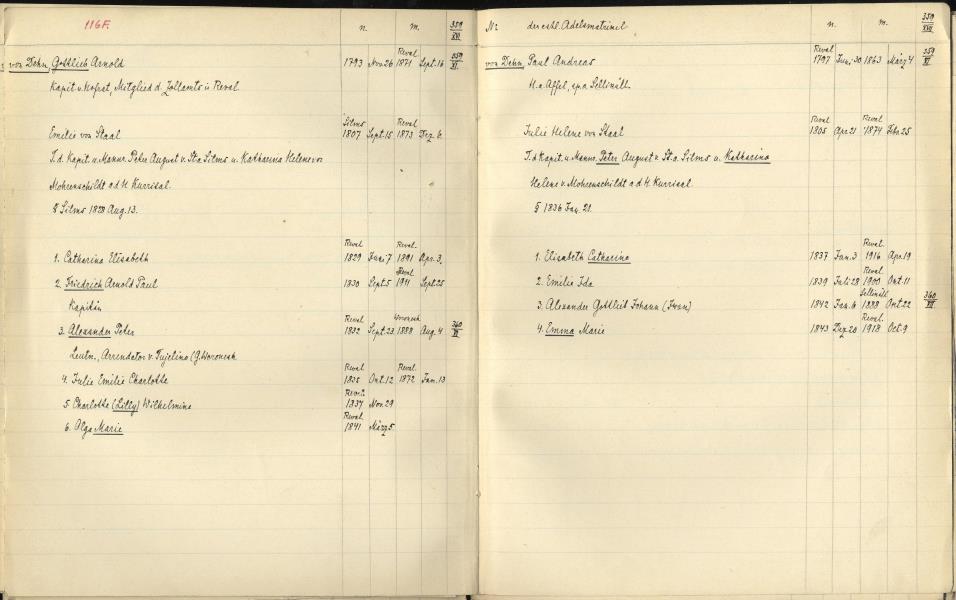 116F. n. m. 359 XVI
von Dehn, Gottlieb Arnold 1793 Nov. 26 Reval 1871 Sept. 16 359 XI
Kapit. u. Hofrat, Mitglied d. Zollamts in Reval
Emilie von Staal Silms 1807 Sept. 15 Reval 1873 Dez. 6
T. d. Kapit. u. Mannr. Peter August v. St. a. Silms u. Katharina Helene von
Mohrenschildt a. d. H. Kurrisal.
§ Silms 1828 Aug. 13.
1. Catharina Elisabeth Reval 1829 Juni 7 Reval 1891 Apr. 3
2. Friedrich Arnold Paul 1830 Sept. 5 Reval 1911 Sept. 25
Kapitän
3. Alexander Peter Reval 1832 Sept. 23 Woronesh 1888 Aug. 4 360 XI
Leutn., Arrendator v. Tujelino (G. Woronesh
4. Julie Emilie Charlotte Reval 1835 Oct. 12 Reval 1872 Jan. 13
5 Charlotte (Lilly) Wilhelmine Reval 1837 Nov. 29
6. Olga Marie Reval 1841 März 5
No der estl. Adelsmatrikel n. m. 359 XVI
von Dehn, Paul Andreas Reval 1797 Juni 30 1863 März 4 359 XI
H. a. Affel, sp. a. Sellinäll.
Julie Helene von Staal Reval 1805 Apr. 21 Reval 1874 Febr. 25
T. d. Kapit. u. Mannr. Peter August v. St. a. Silms u. Katharina
Helene v. Mohrenschildt a. d. H. Kurrisal
§ 1836 Jan. 21.
1. Elisabeth Catharina 1837 Jan. 3 Reval 1916 Apr. 19
2. Emilie Ida 1839 Juli 28 Reval 1900 Oct. 11
3. Alexander Gottlieb Johann (Iwan) 1842 Jan. 6 Sellinäll 1888 Oct. 22 360 XI
4. Emma Marie 1843 Dez. 20 Reval 1918 Oct. 9